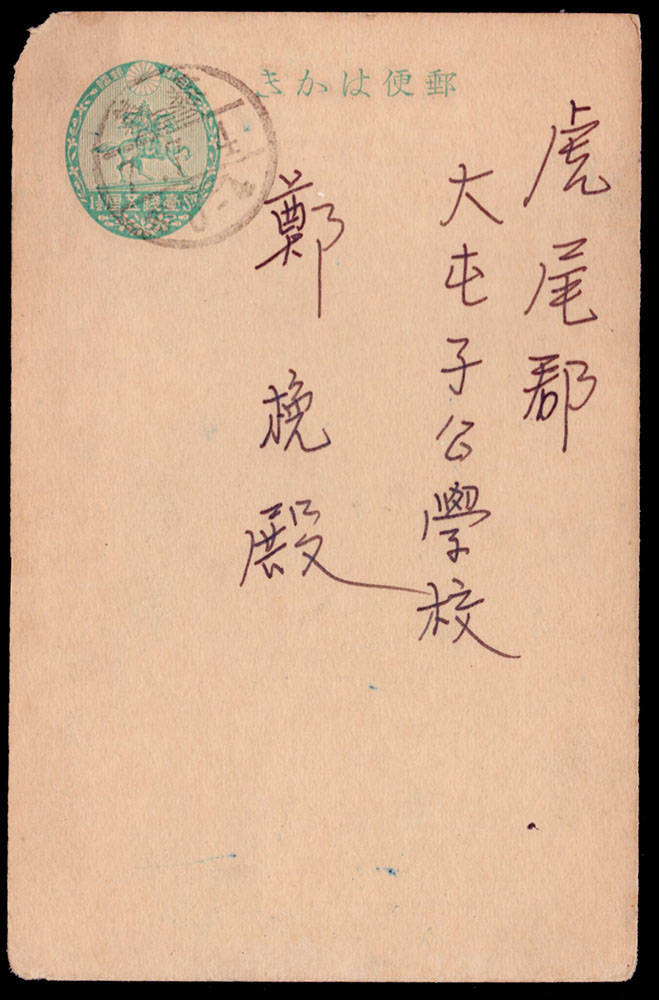 郵便はかき
虎尾郡
大屯子公學校
鄭梚殿